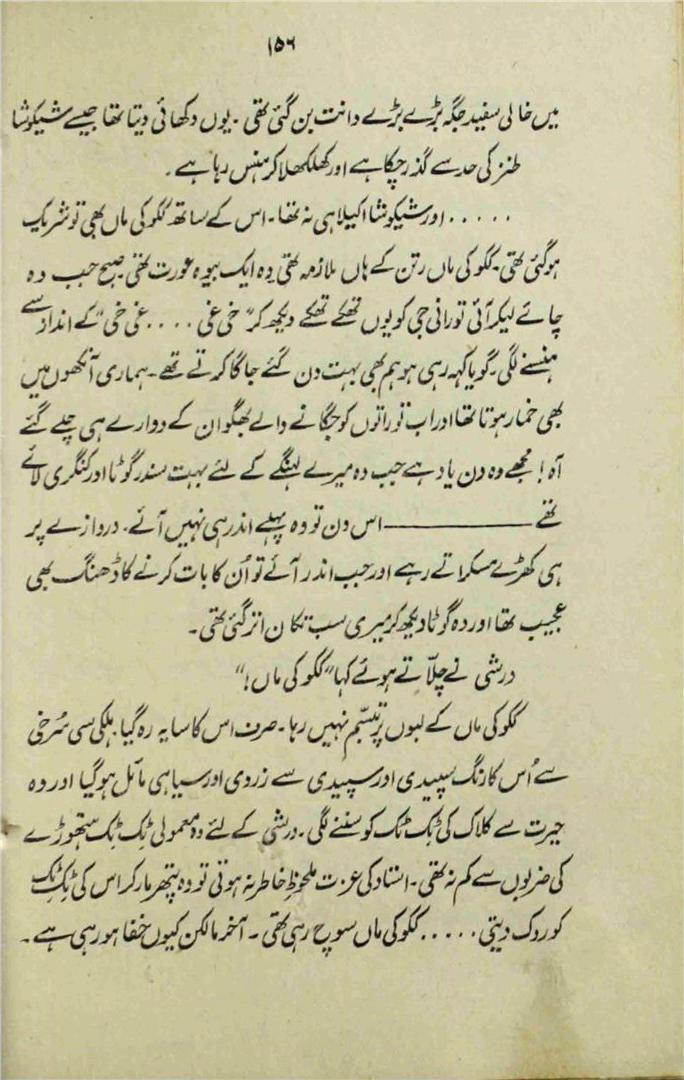 ۱۵۶
میں خالی سفید جگہ بڑے بڑے دانت بن گئی تھی ۔ یوں دکھائی دیتا تھا جیسے شیکوشا
طنز کی حد سے گذر چکا ہے اور کھلکھلا کر ہنس رہا ہے ۔
..... اور شیکوشا اکیلا ہی نہ تھا ۔ اس کے ساتھ گکو کی ماں بھی تو شریک
ہو گئی تھی ۔ گکو کی ماں رتن کے ہاں ملازمہ تھی وہ ایک بیوہ عورت تھی صبح جب وہ
چائے لیکر آئی تو رانی جی کو یوں تھکے تھکے دیکھ کر "خی غی .... غی خی" کے انداز سے
ہنسنے لگی ۔ گویا کہہ رہی ہو ہم بھی بہت دن گئے جاگا کرتے تھے ۔ ہماری آنکھوں میں
بھی خمار ہوتا تھا اور اب تو راتوں کو جگانے والے بھگوان کے دوارے ہی چلے گئے
آہ! مجھے وہ دن یاد ہے جب وہ میرے لہنگے کے لئے بہت سندر گوٹا اور کنگری لائے
تھے ـــــــــ اس دن تو وہ پہلے اندر ہی نہیں آئے ۔ دروازے پر
ہی کھڑے مسکراتے رہے اور جب اندر آئے تو اُن کا بات کرنے کا ڈھنگ بھی
عجیب تھا اور وہ گوٹا دیکھ کر میری سب تکان اتر گئی تھی ۔
درشی نے چلّاتے ہوئے کہا "گکو کی ماں!"
گکو کی ماں کے لبوں پر تبسّم نہیں رہا ۔ صرف اس کا سایہ رہ گیا ۔ ہلکی سی سُرخی
سے اُس کا رنگ سپیدی اور سپیدی سے زردی اور سیاہی مائل ہو گیا اور وہ
حیرت سے کلاک کی ٹِک ٹِک کو سننے لگی ۔ درشی کے لئے وہ معمولی ٹِک ٹِک ہتھوڑے
کی ضربوں سے کم نہ تھی ۔ استاد کی عزت ملحوظِ خاطر نہ ہوتی تو وہ پتھر مار کر اس کی ٹِک ٹِک
کو روک دیتی ..... گکو کی ماں سوچ رہی تھی ۔ آخر مالکن کیوں خفا ہو رہی ہے ۔